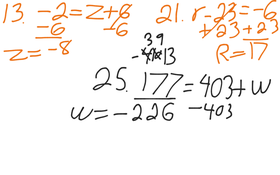 13. -2 = z + 6
-6 -6
z = -8
21. r - 23 = -6
+23 +23
R = 17
39
13
25. 177 = 403 + w
-403
w = -226